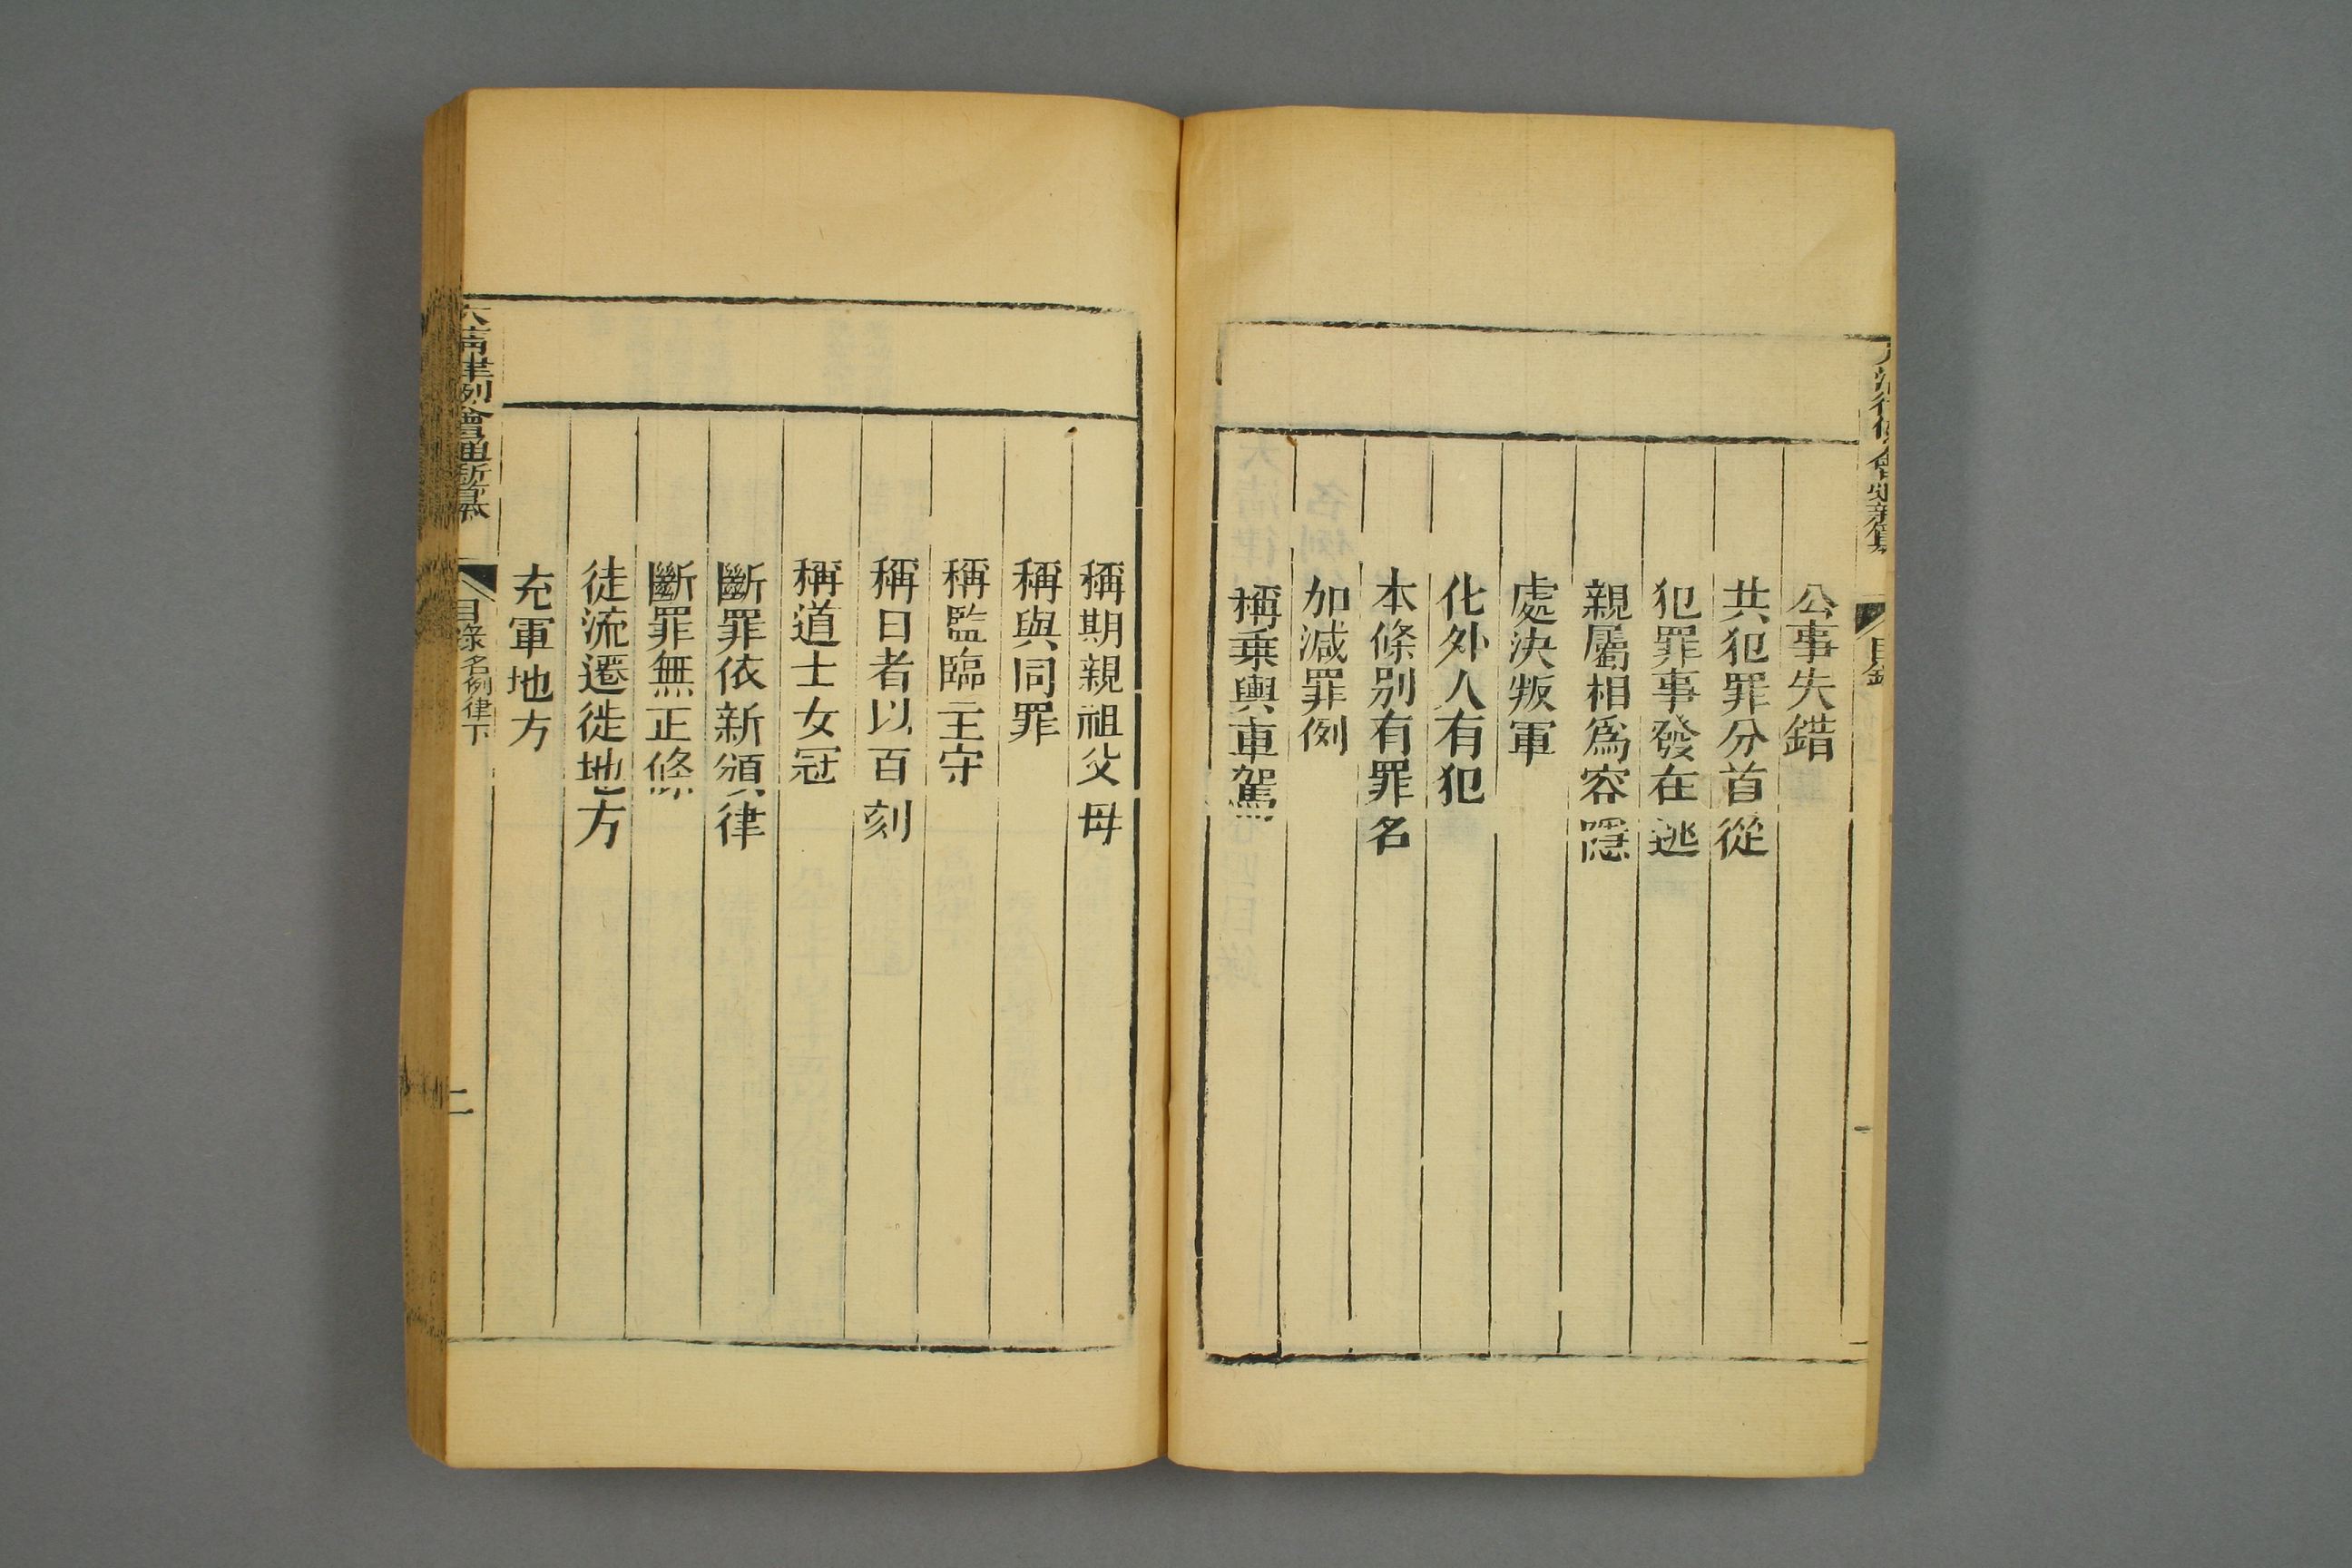 公事失錯
共犯罪分首從
犯罪事發在逃
親屬相爲容隱
處決叛軍
化外人有犯
本條別有罪名
加減罪例
稱乗輿車駕
稱期親祖父母
稱與同罪
稱監臨主守
稱日者以百刻
稱道士女冠
斷罪依新頒律
斷罪無正條
徒流遷徙地方
充軍地方
大清律例會通新纂
目錄 名例律下
二